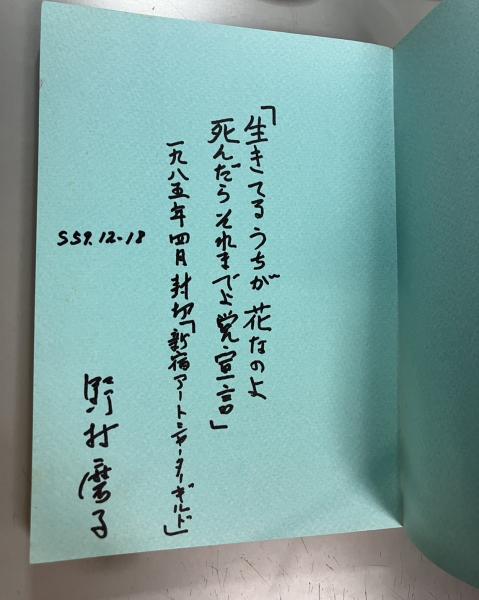 「生きてるうちが花なのよ
死んだらそれまでよ党宣言」
一九八五年四月封切「新宿アートシアターギルド」
S59.12-18
野村磨子